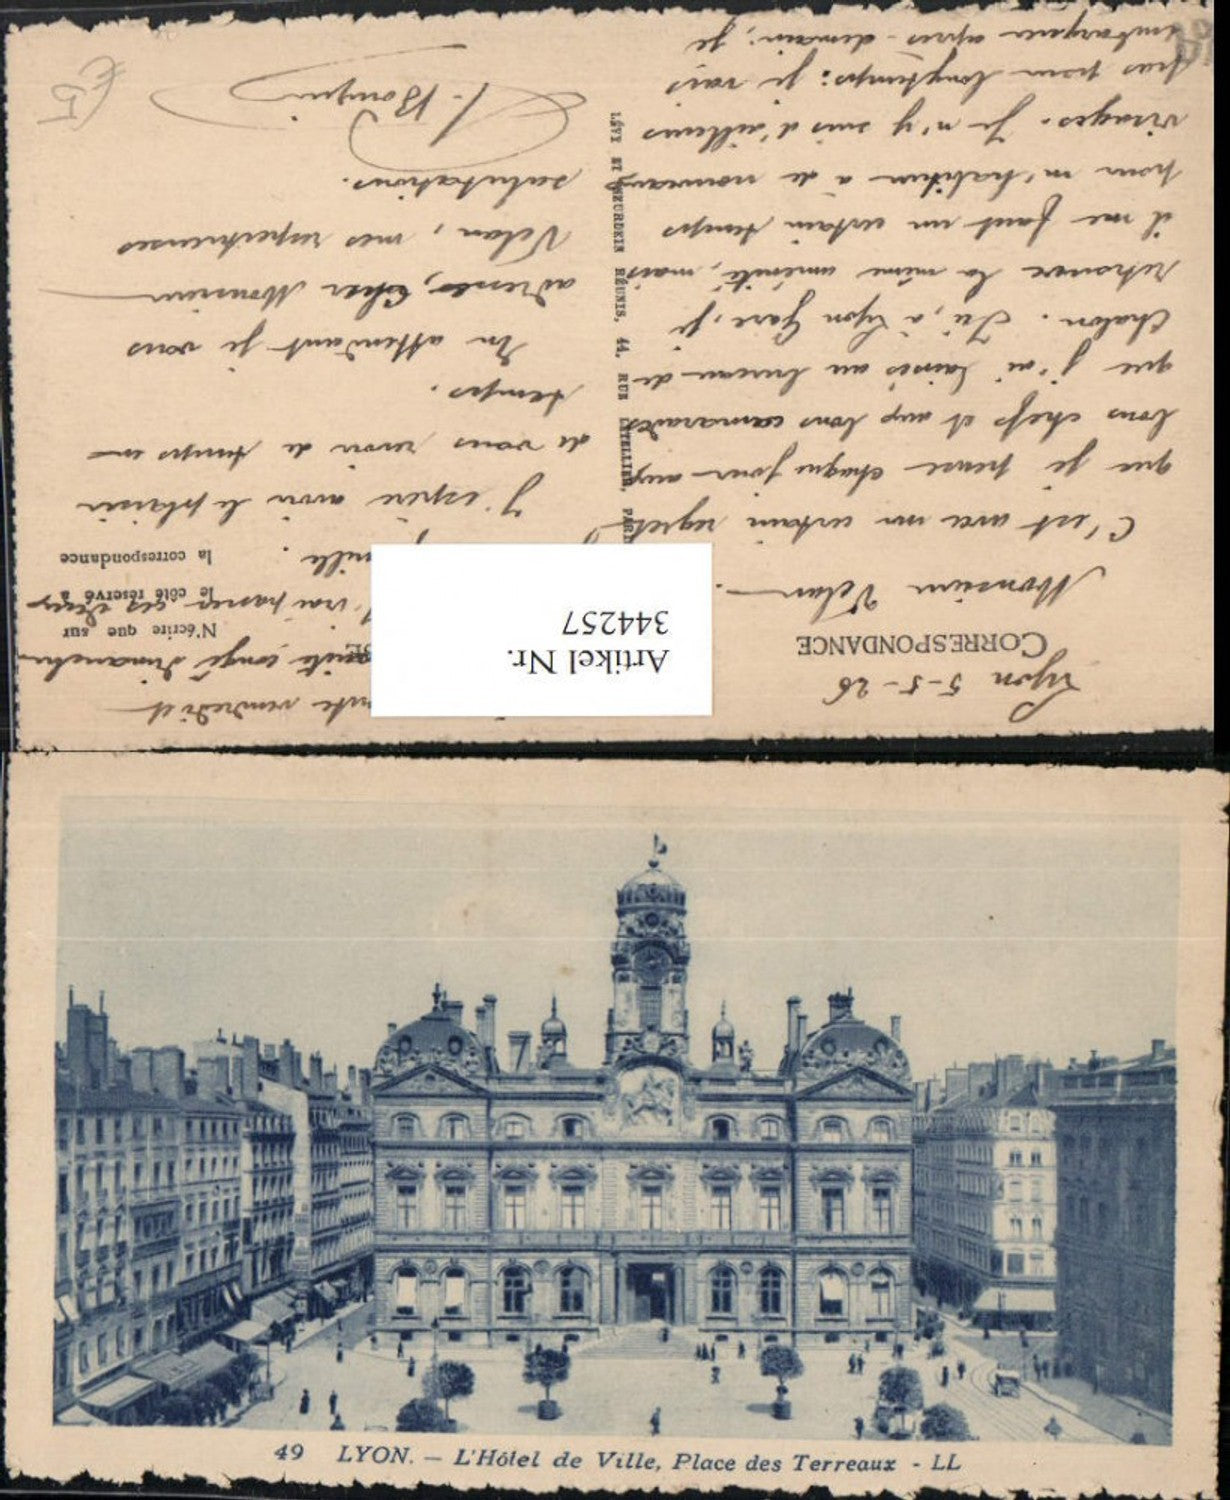 Lyon 5-5-26
CORRESPONDANCE
Monsieur Velan
C'est avec un certain regret
que je pense chaque jour aux
bons chefs et aux bons camarades
que j'ai laissés au bureau de
Chalon. Ici, à Lyon Gare, je
retrouve la même aménité, mais
il me faut un certain temps
pour m'habituer à de nouveaux
visages. Je n'y suis d'ailleurs
pas pour longtemps : je vais
embarquer après-demain ; je
LÉVY ET NEURDEIN RÉUNIS, 44, RUE LETELLIER, PARIS
vendredi et
congé dimanche
N'écrire que sur
le côté réservé à
la correspondance
J'espère avoir le plaisir
de vous revoir de temps en
temps.
En attendant je vous
adresse, Cher Monsieur
Velan, mes respectueuses
salutations.
€5
Artikel Nr.
344257
49 LYON. — L'Hôtel de Ville, Place des Terreaux - LL